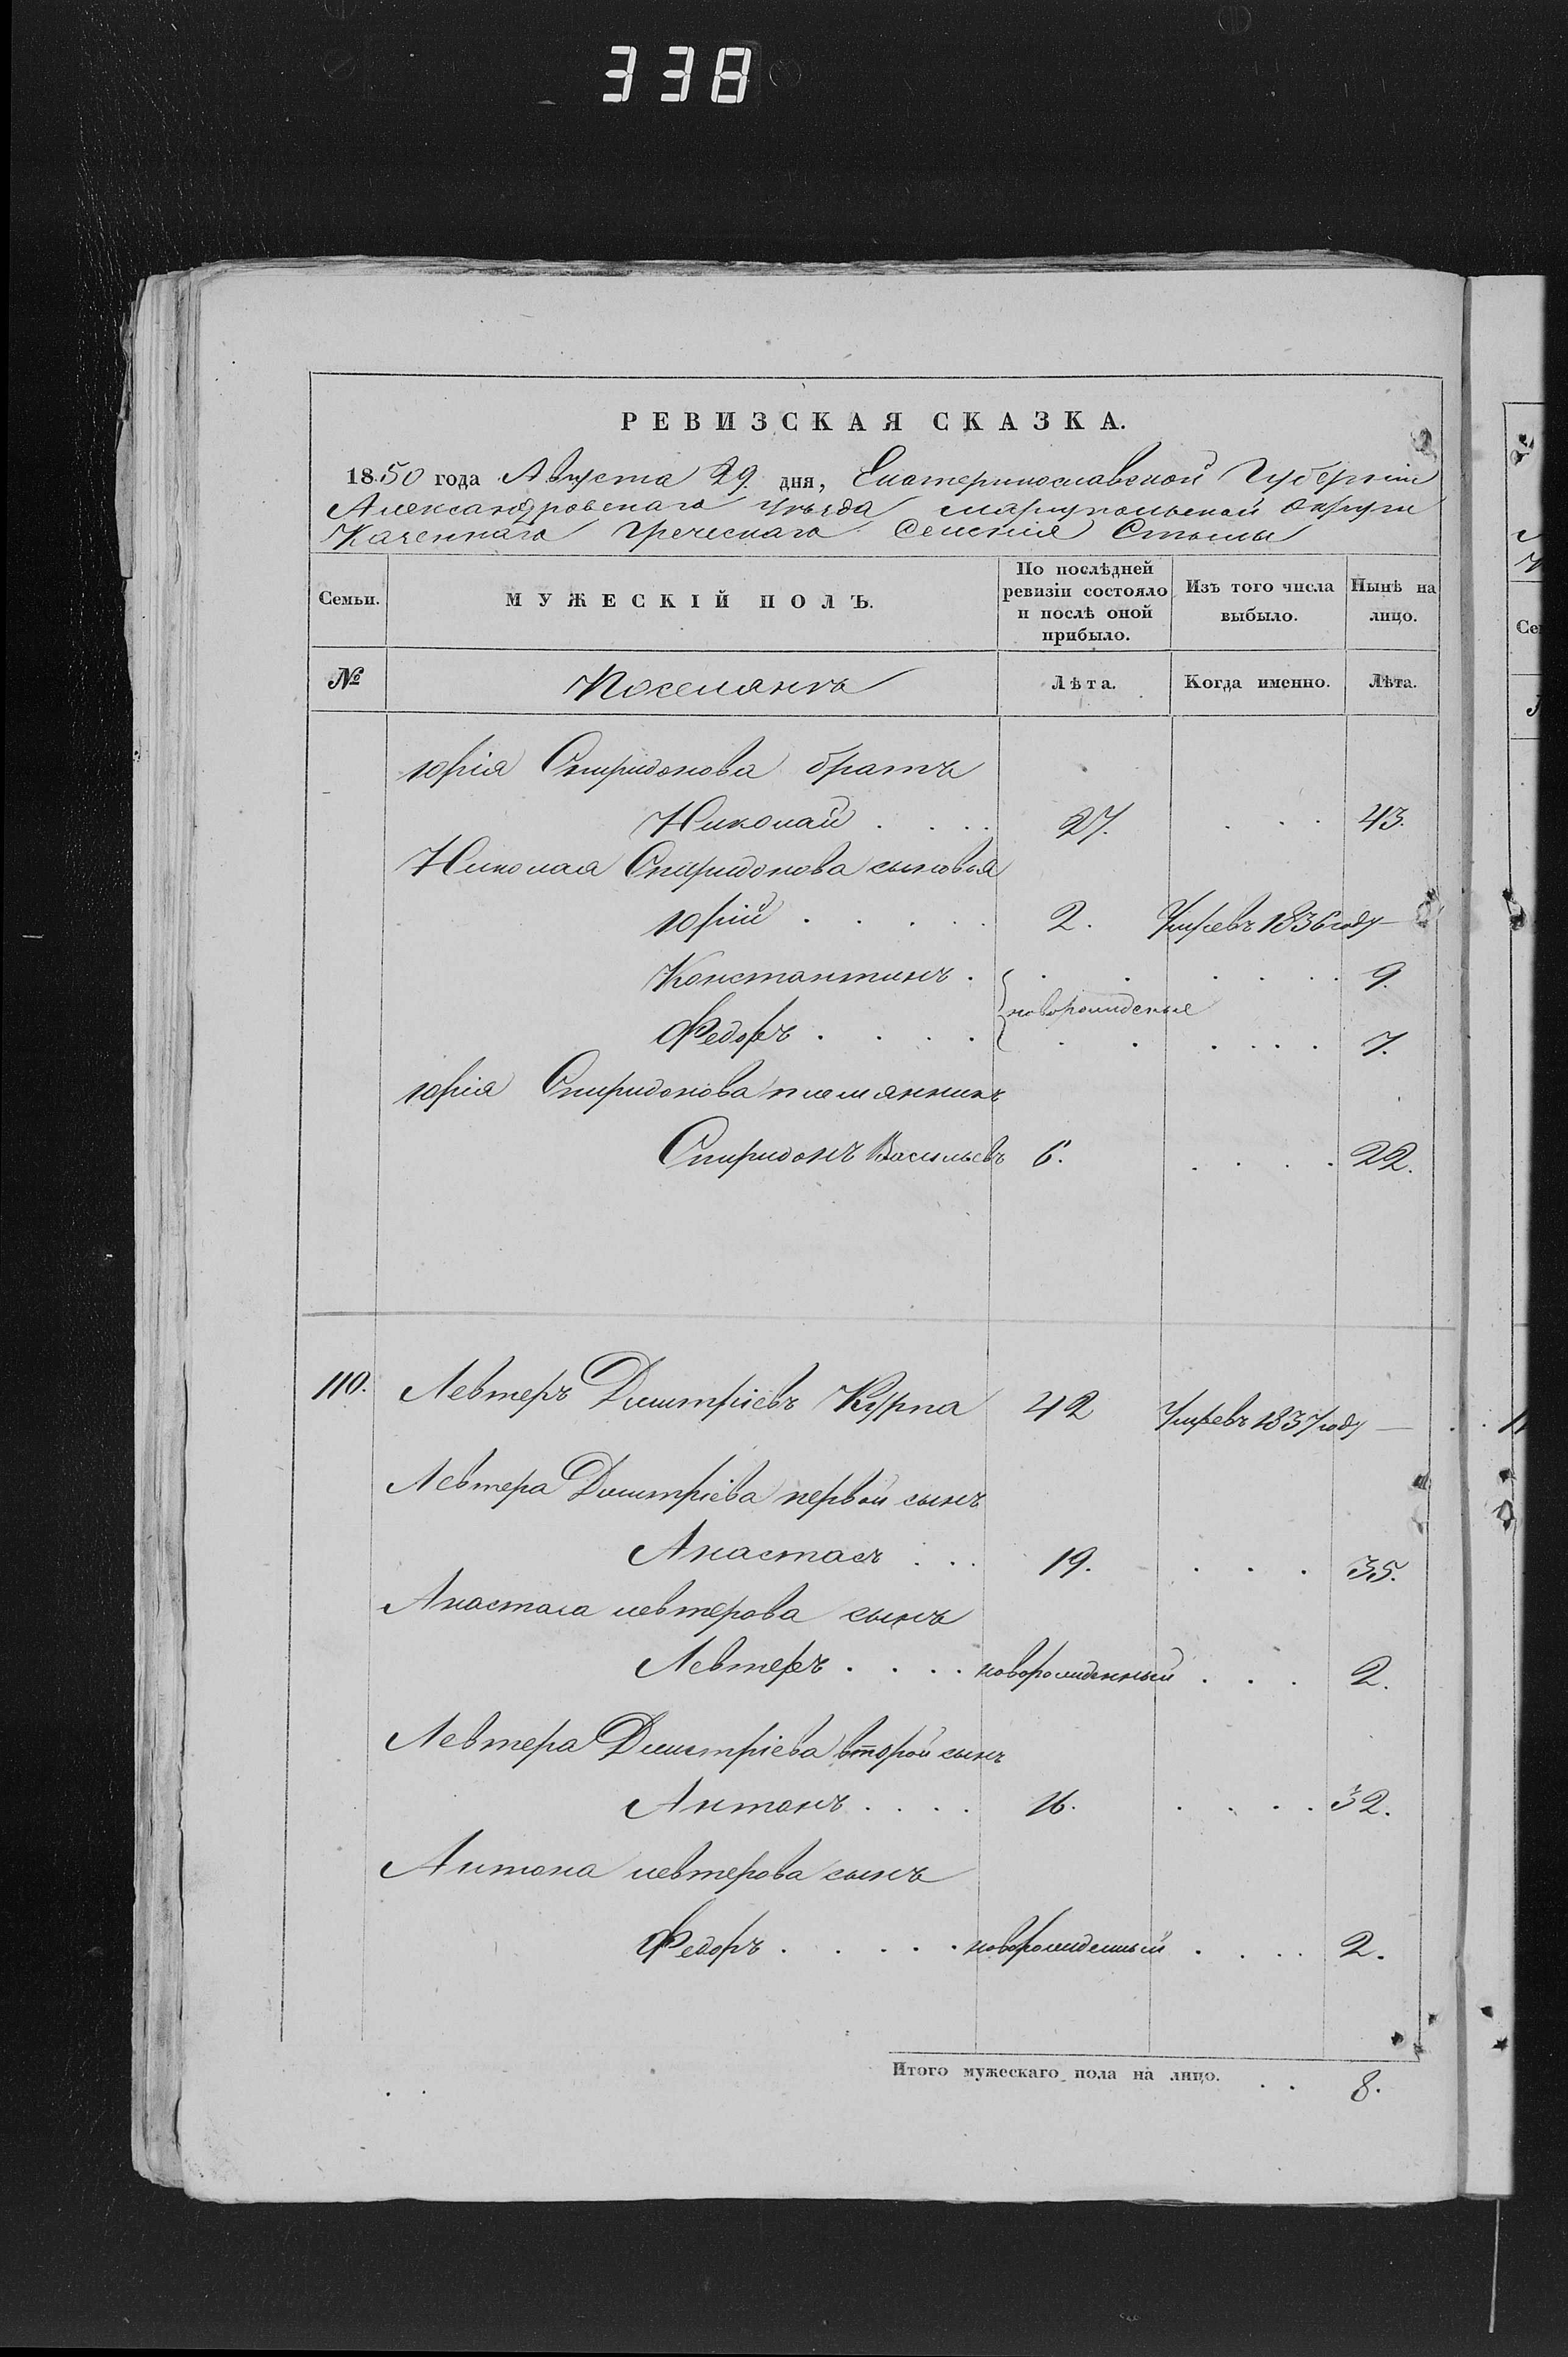 338
РЕВИЗСКАЯ СКАЗКА.
1850 года Августа 29. дня, Екатеринославской Губерніи
Александровскаго уѣзда Маріупольской Округи
Казеннаго Греческаго Селенія Стылы
Семьи. МУЖЕСКІЙ ПОЛЪ. По послѣдней ревизіи состояло и послѣ оной прибыло. Изъ того числа выбыло. Нынѣ на лицо.
№ Поселянъ Лѣта. Когда именно. Лѣта.
Юрія Спиридонова братъ
Николай . . . . 27. . . . 43.
Николая Спиридонова сыновья
Юрій . . . . . 2. Умре въ 1836 году —
Константинъ . . . . . . . 9.
новорожденые
Федоръ . . . . . . . . . . 7.
Юрія Спиридонова племянникъ
Спиридонъ Васильевъ 6. . . . . 22.
110. Левтеръ Дмитріевъ Курпа 42 Умре въ 1837 году —
Левтера Дмитріева первой сынъ
Анастасъ . . . 19. . . . 35.
Анастаса левтерова сынъ
Левтеръ . . . . новорожденный . . . 2.
Левтера Дмитріева второй сынъ
Антонъ . . . . 16. . . . . 32.
Антона левтерова сынъ
Федоръ . . . . . новорожденный . . . . 2.
Итого мужескаго пола на лицо. . . 8.